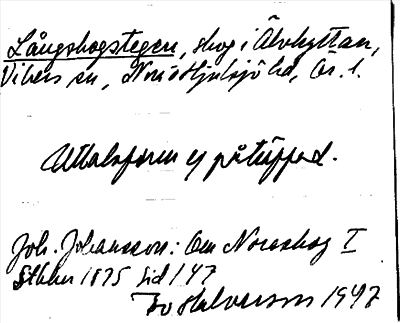 Långskogstegen, skog i Älvhyttan,
Vikers sn, Nora o Hjulsjö hd, Ör. l.
Uttalsformen ej påträffad.
Joh. Johansson: Om Noraskog I
Sthlm 1875 sid 147
Ivo Halvarson 1947